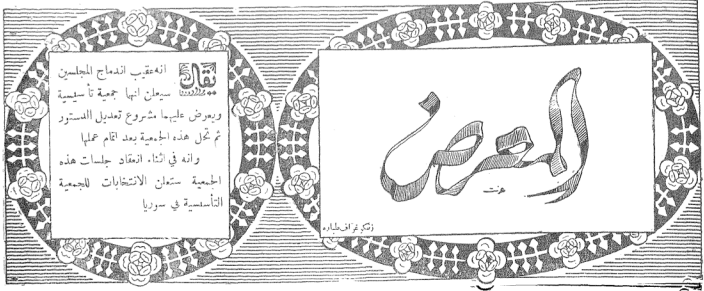 المعرض
عزت
زنكو غراف طباره
يقال انه عقيب اندماج المجلسين
سيعلن انهما جمعية تأسيسية
ويعرض عليهما مشروع تعديل الدستور
ثم تحل هذه الجمعية بعد اتمام عملها
وانه في اثناء انعقاد جلسات هذه
الجمعية ستعلن الانتخابات للجمعية
التأسيسية في سوريا